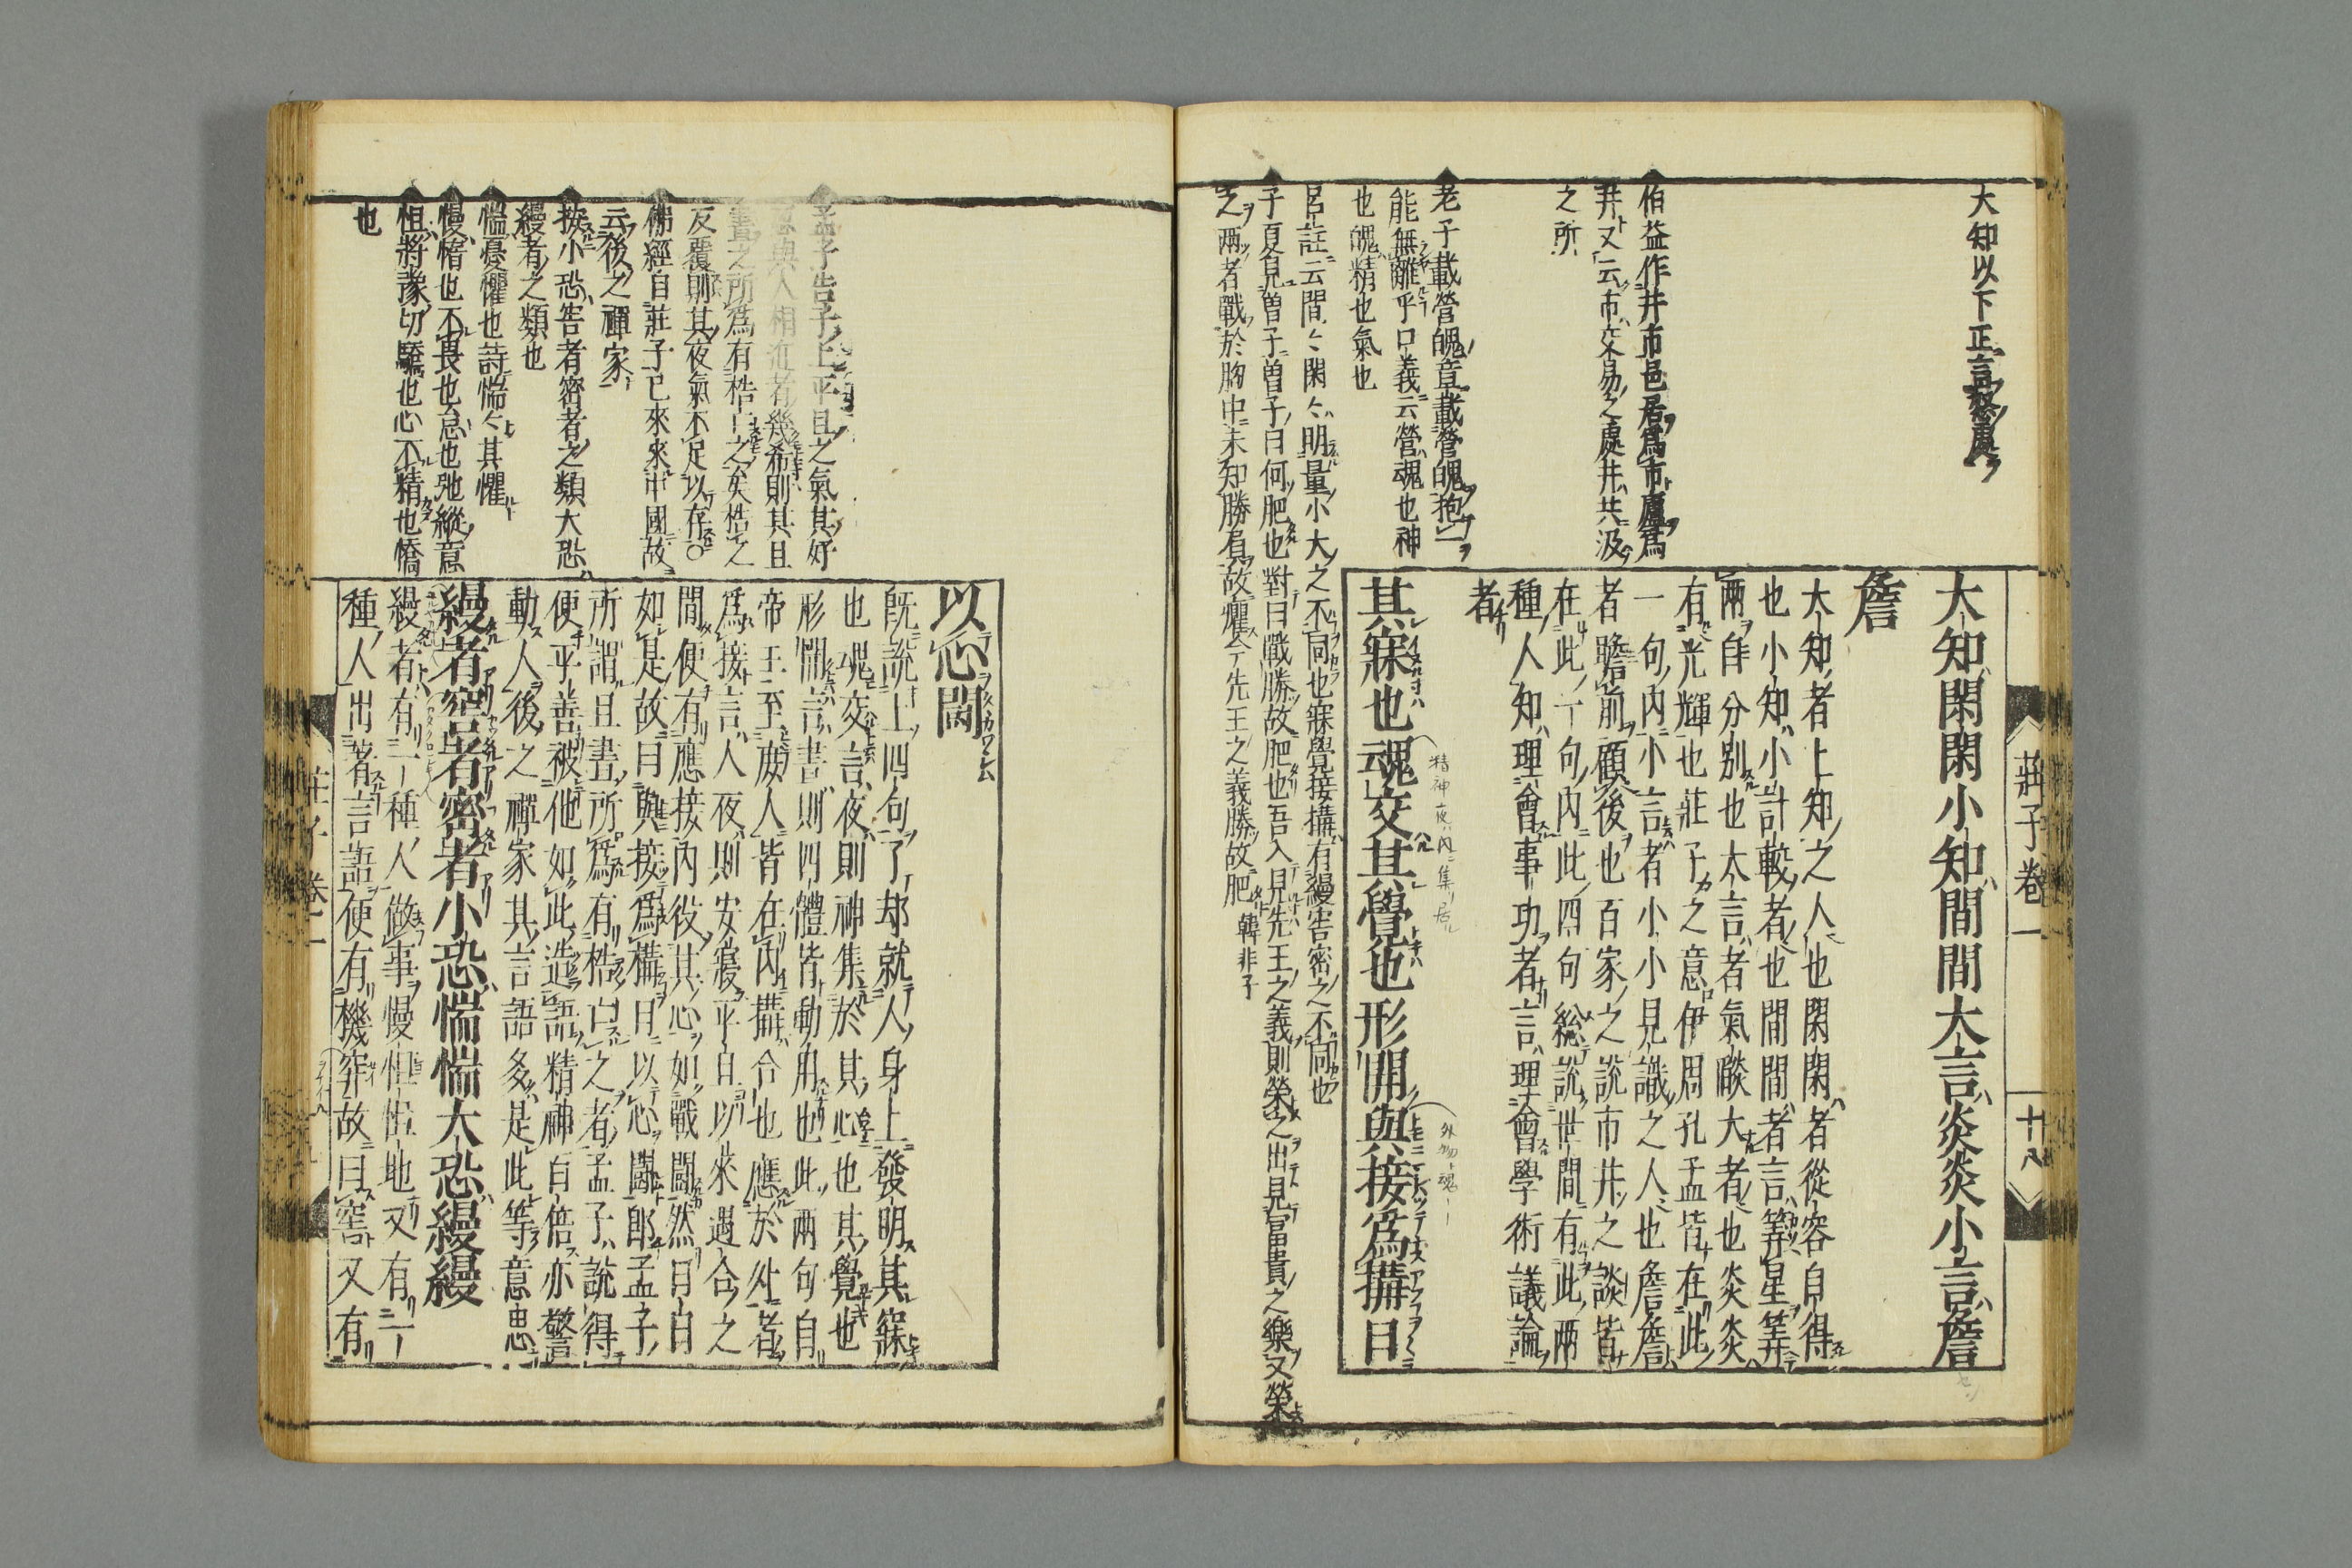 大知以下正言怒處
伯益作井市邑居爲市廬爲
井又云市交易之處井共汲
之所
老子載營魄章載營魄抱一
能無離乎口義云營魂也神
也魄精也氣也
呂註云間〻閑〻明量小大之不同也寐覺接搆有縵窖密之不同也
子夏見曽子曽子曰何肥也對曰戰勝故肥也吾入見先王之義則榮之出見冨貴之樂又榮
之兩者戰於胸中未知勝負故癯今先王之義勝故肥 韓非子
莊子卷一
十八
大知閑閑小知間間大言炎炎小言詹
詹
大知者上知之人也閑閑者從容自得
也小知小計較者也間間者言筭星筭
兩自分別也大言者氣燄大者也炎炎
有光輝也莊子之意伊周孔孟皆在此
一句内小言者小小見識之人也詹詹
者瞻前顧後也百家之說市井之談皆
在此一句内此四句総說世間有此兩
種人知理會事功者言理會學術議論
者
其寐也魂交其覺也形開與接爲搆日
精神夜内ニ集リ居ル
以心鬪
旣說上四句了却就人身上發明其寐
也魂交言夜則神集於其心也其覺也
形開言晝則四體皆動用也此兩句自
帝王至庶人皆在内搆合也應於外者
爲接言人夜則安寢平旦以來遇合之
間便有應接内役其心如戰鬪然日日
如是故曰與接爲構日以心鬪郎孟子
所謂旦晝所爲有梏亡之者孟子說得
便平善被他如此造語精神百倍亦警
動人後之禪家其言語多是此等意思
縵者窖者密者小恐惴惴大恐縵縵
縵者有一種人做事慢怛怛地又有一
種人出著言語便有機穽故曰窖又有
孟子告子上平旦之氣其好
惡與人相近者幾希則其旦
晝之所爲有梏亡之矣梏之
反覆則其夜氣不足以存○
佛經自莊子已來來中國故
云後之禪家
按小恐窖者密者之類大恐
縵者之類也
惴憂懼也詩惴〻其懼
慢惰也不畏也怠也弛縱意
怚將豫切驕也心不精也憍
也